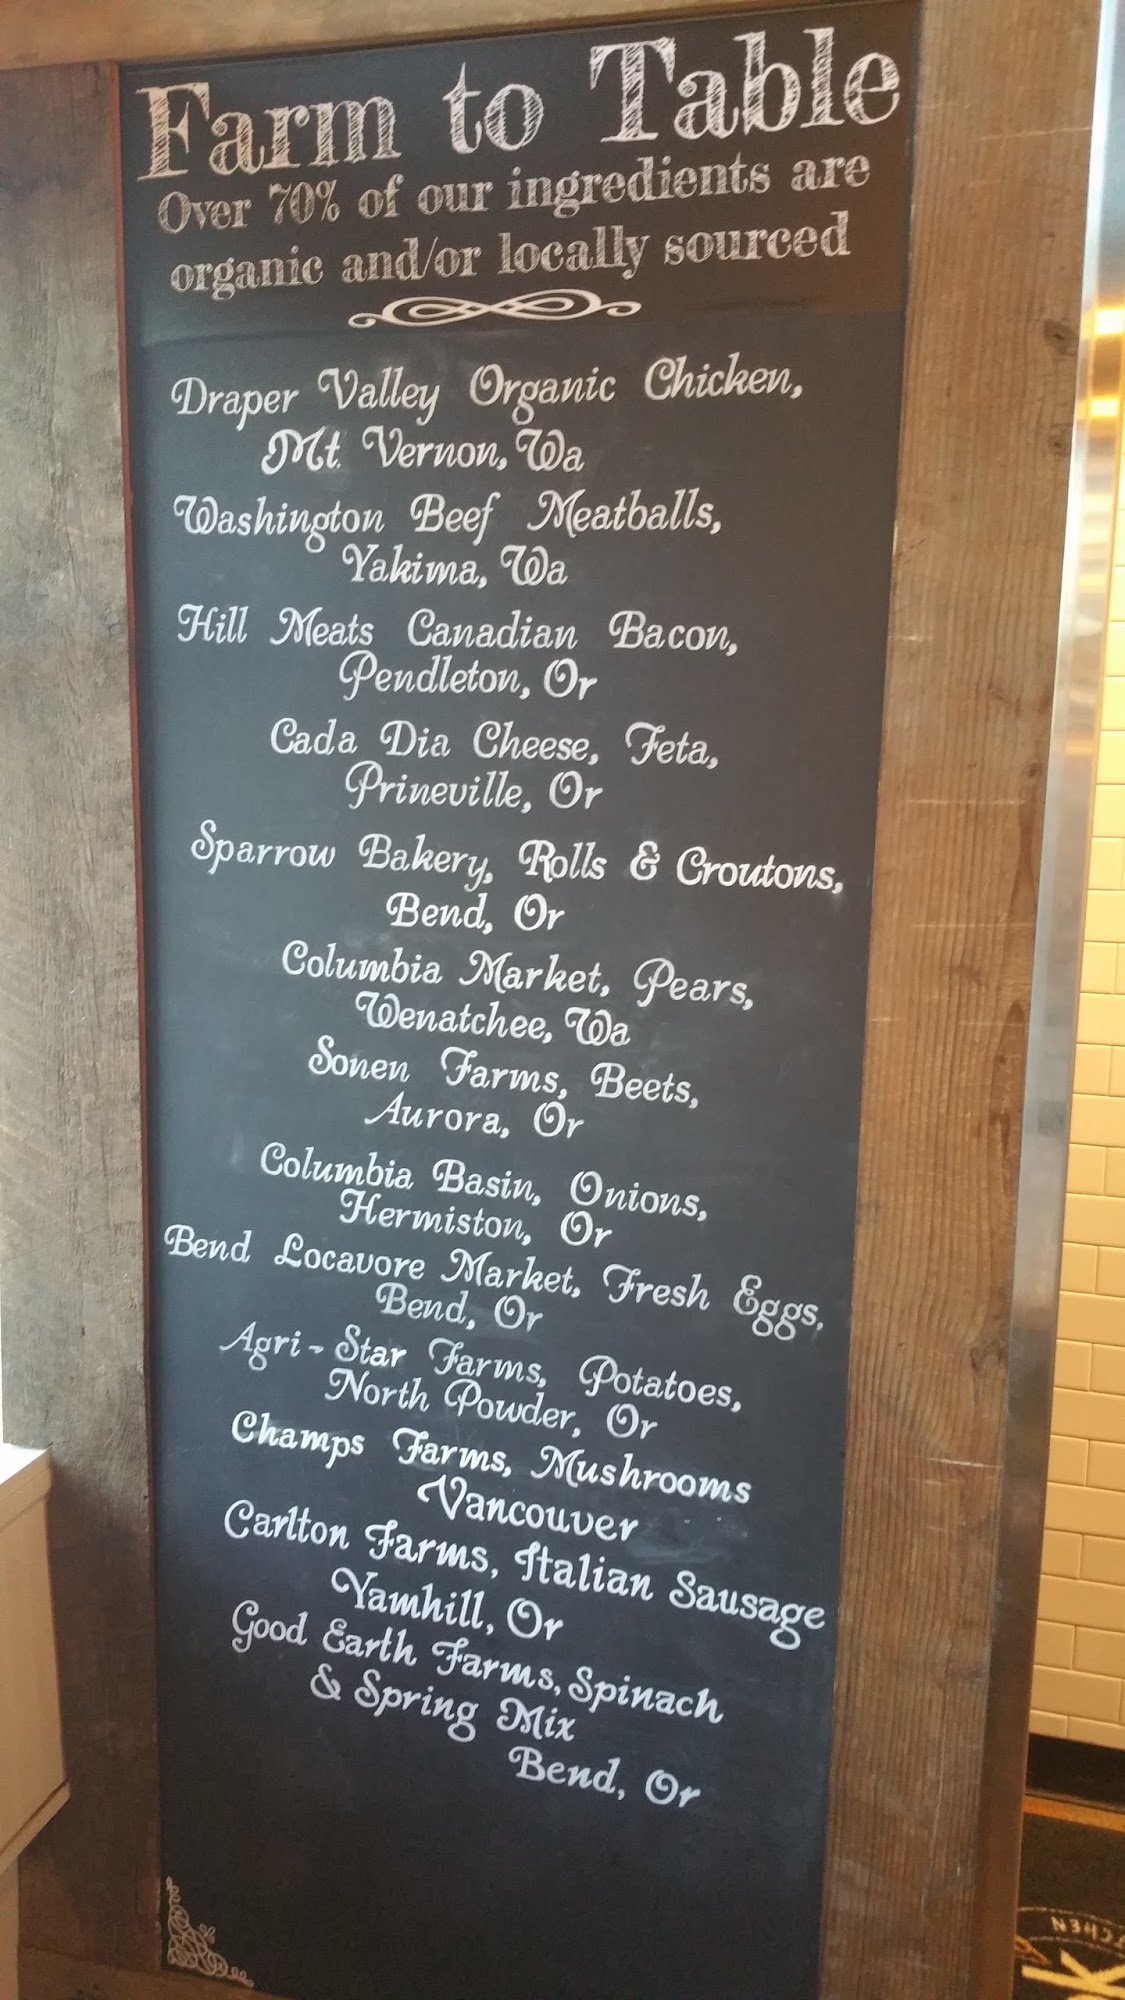 Farm to Table
Over 70% of our ingredients are
organic and/or locally sourced
Draper Valley Organic Chicken,
Mt. Vernon, Wa
Washington Beef Meatballs,
Yakima, Wa
Hill Meats Canadian Bacon,
Pendleton, Or
Cada Dia Cheese, Feta,
Prineville, Or
Sparrow Bakery, Rolls & Croutons,
Bend, Or
Columbia Market, Pears,
Wenatchee, Wa
Sonen Farms, Beets,
Aurora, Or
Columbia Basin, Onions,
Hermiston, Or
Bend Locavore Market, Fresh Eggs,
Bend, Or
Agri-Star Farms, Potatoes,
North Powder, Or
Champs Farms, Mushrooms
Vancouver
Carlton Farms, Italian Sausage
Yamhill, Or
Good Earth Farms, Spinach
& Spring Mix
Bend, Or